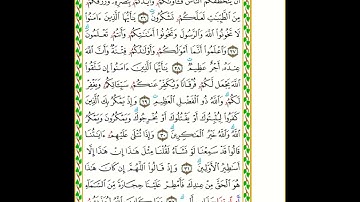 أَن يَتَخَطَّفَكُمُ ٱلنَّاسُ فَـَٔاوَىٰكُمْ وَأَيَّدَكُم بِنَصْرِهِۦ وَرَزَقَكُم
مِّنَ ٱلطَّيِّبَٰتِ لَعَلَّكُمْ تَشْكُرُونَ يَٰٓأَيُّهَا ٱلَّذِينَ ءَامَنُوا۟
لَا تَخُونُوا۟ ٱللَّهَ وَٱلرَّسُولَ وَتَخُونُوٓا۟ أَمَٰنَٰتِكُمْ وَأَنتُمْ تَعْلَمُونَ
وَٱعْلَمُوٓا۟ أَنَّمَآ أَمْوَٰلُكُمْ وَأَوْلَٰدُكُمْ فِتْنَةٌ وَأَنَّ ٱللَّهَ
عِندَهُۥٓ أَجْرٌ عَظِيمٌ يَٰٓأَيُّهَا ٱلَّذِينَ ءَامَنُوٓا۟ إِن تَتَّقُوا۟
ٱللَّهَ يَجْعَل لَّكُمْ فُرْقَانًا وَيُكَفِّرْ عَنكُمْ سَيِّـَٔاتِكُمْ وَيَغْفِرْ
لَكُمْ وَٱللَّهُ ذُو ٱلْفَضْلِ ٱلْعَظِيمِ وَإِذْ يَمْكُرُ بِكَ ٱلَّذِينَ
كَفَرُوا۟ لِيُثْبِتُوكَ أَوْ يَقْتُلُوكَ أَوْ يُخْرِجُوكَ وَيَمْكُرُونَ وَيَمْكُرُ
ٱللَّهُ وَٱللَّهُ خَيْرُ ٱلْمَٰكِرِينَ وَإِذَا تُتْلَىٰ عَلَيْهِمْ ءَايَٰتُنَا
قَالُوا۟ قَدْ سَمِعْنَا لَوْ نَشَآءُ لَقُلْنَا مِثْلَ هَٰذَآ إِنْ هَٰذَآ إِلَّآ
أَسَٰطِيرُ ٱلْأَوَّلِينَ وَإِذْ قَالُوا۟ ٱللَّهُمَّ إِن كَانَ هَٰذَا
هُوَ ٱلْحَقَّ مِنْ عِندِكَ فَأَمْطِرْ عَلَيْنَا حِجَارَةً مِّنَ ٱلسَّمَآءِ